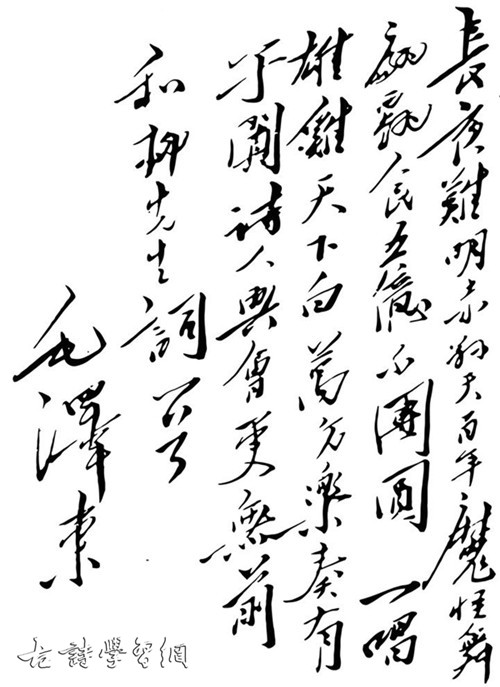 長夜難明赤縣天百年魔怪舞
翩躚人民五億不團圓一唱
雄雞天下白萬方樂奏有
于闐詩人興會更無前
和柳先生詞
毛澤東
古詩學習網